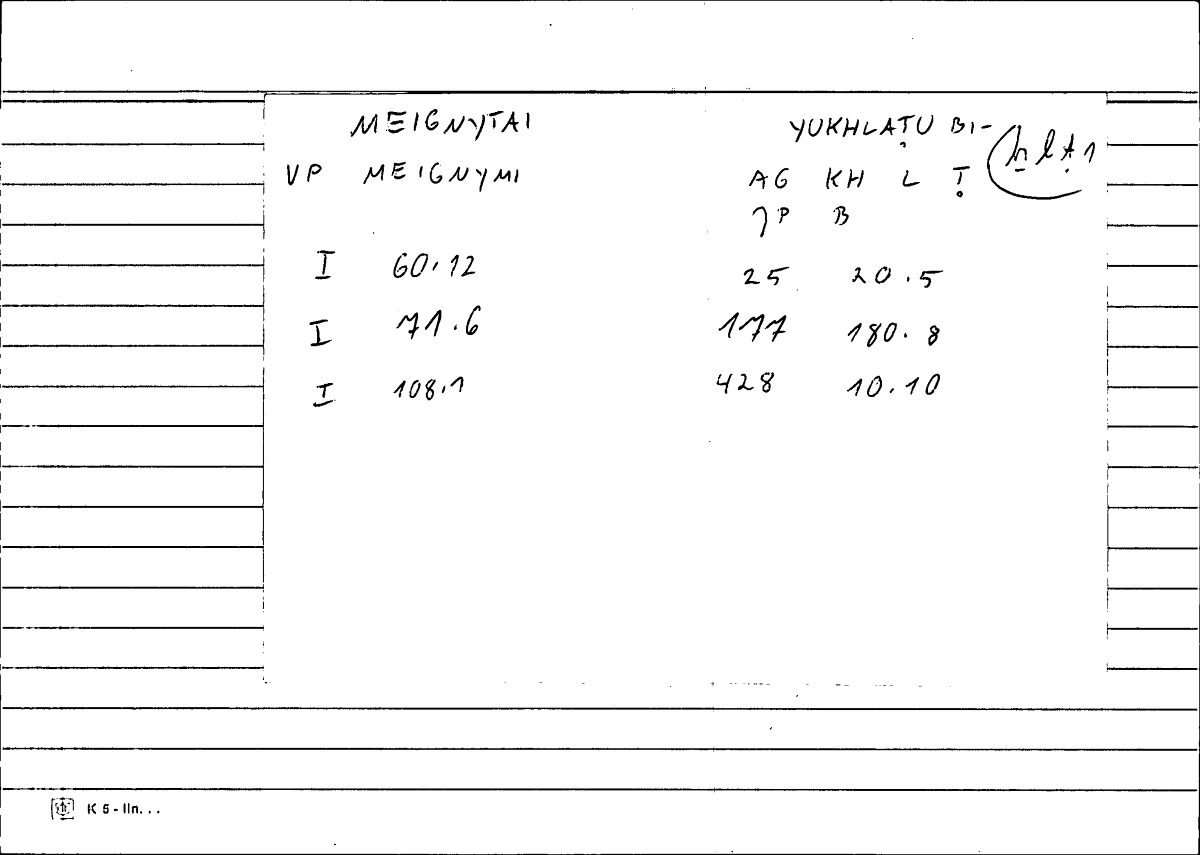 MEIGNYTAI YUKHLAṬU BI-
ḫlṭ1
VP MEIGNYMI AG KH L Ṭ
7P B
I 60.12 25 20.5
I 71.6 177 180.8
I 108.1 428 10.10
K 5 - lln...